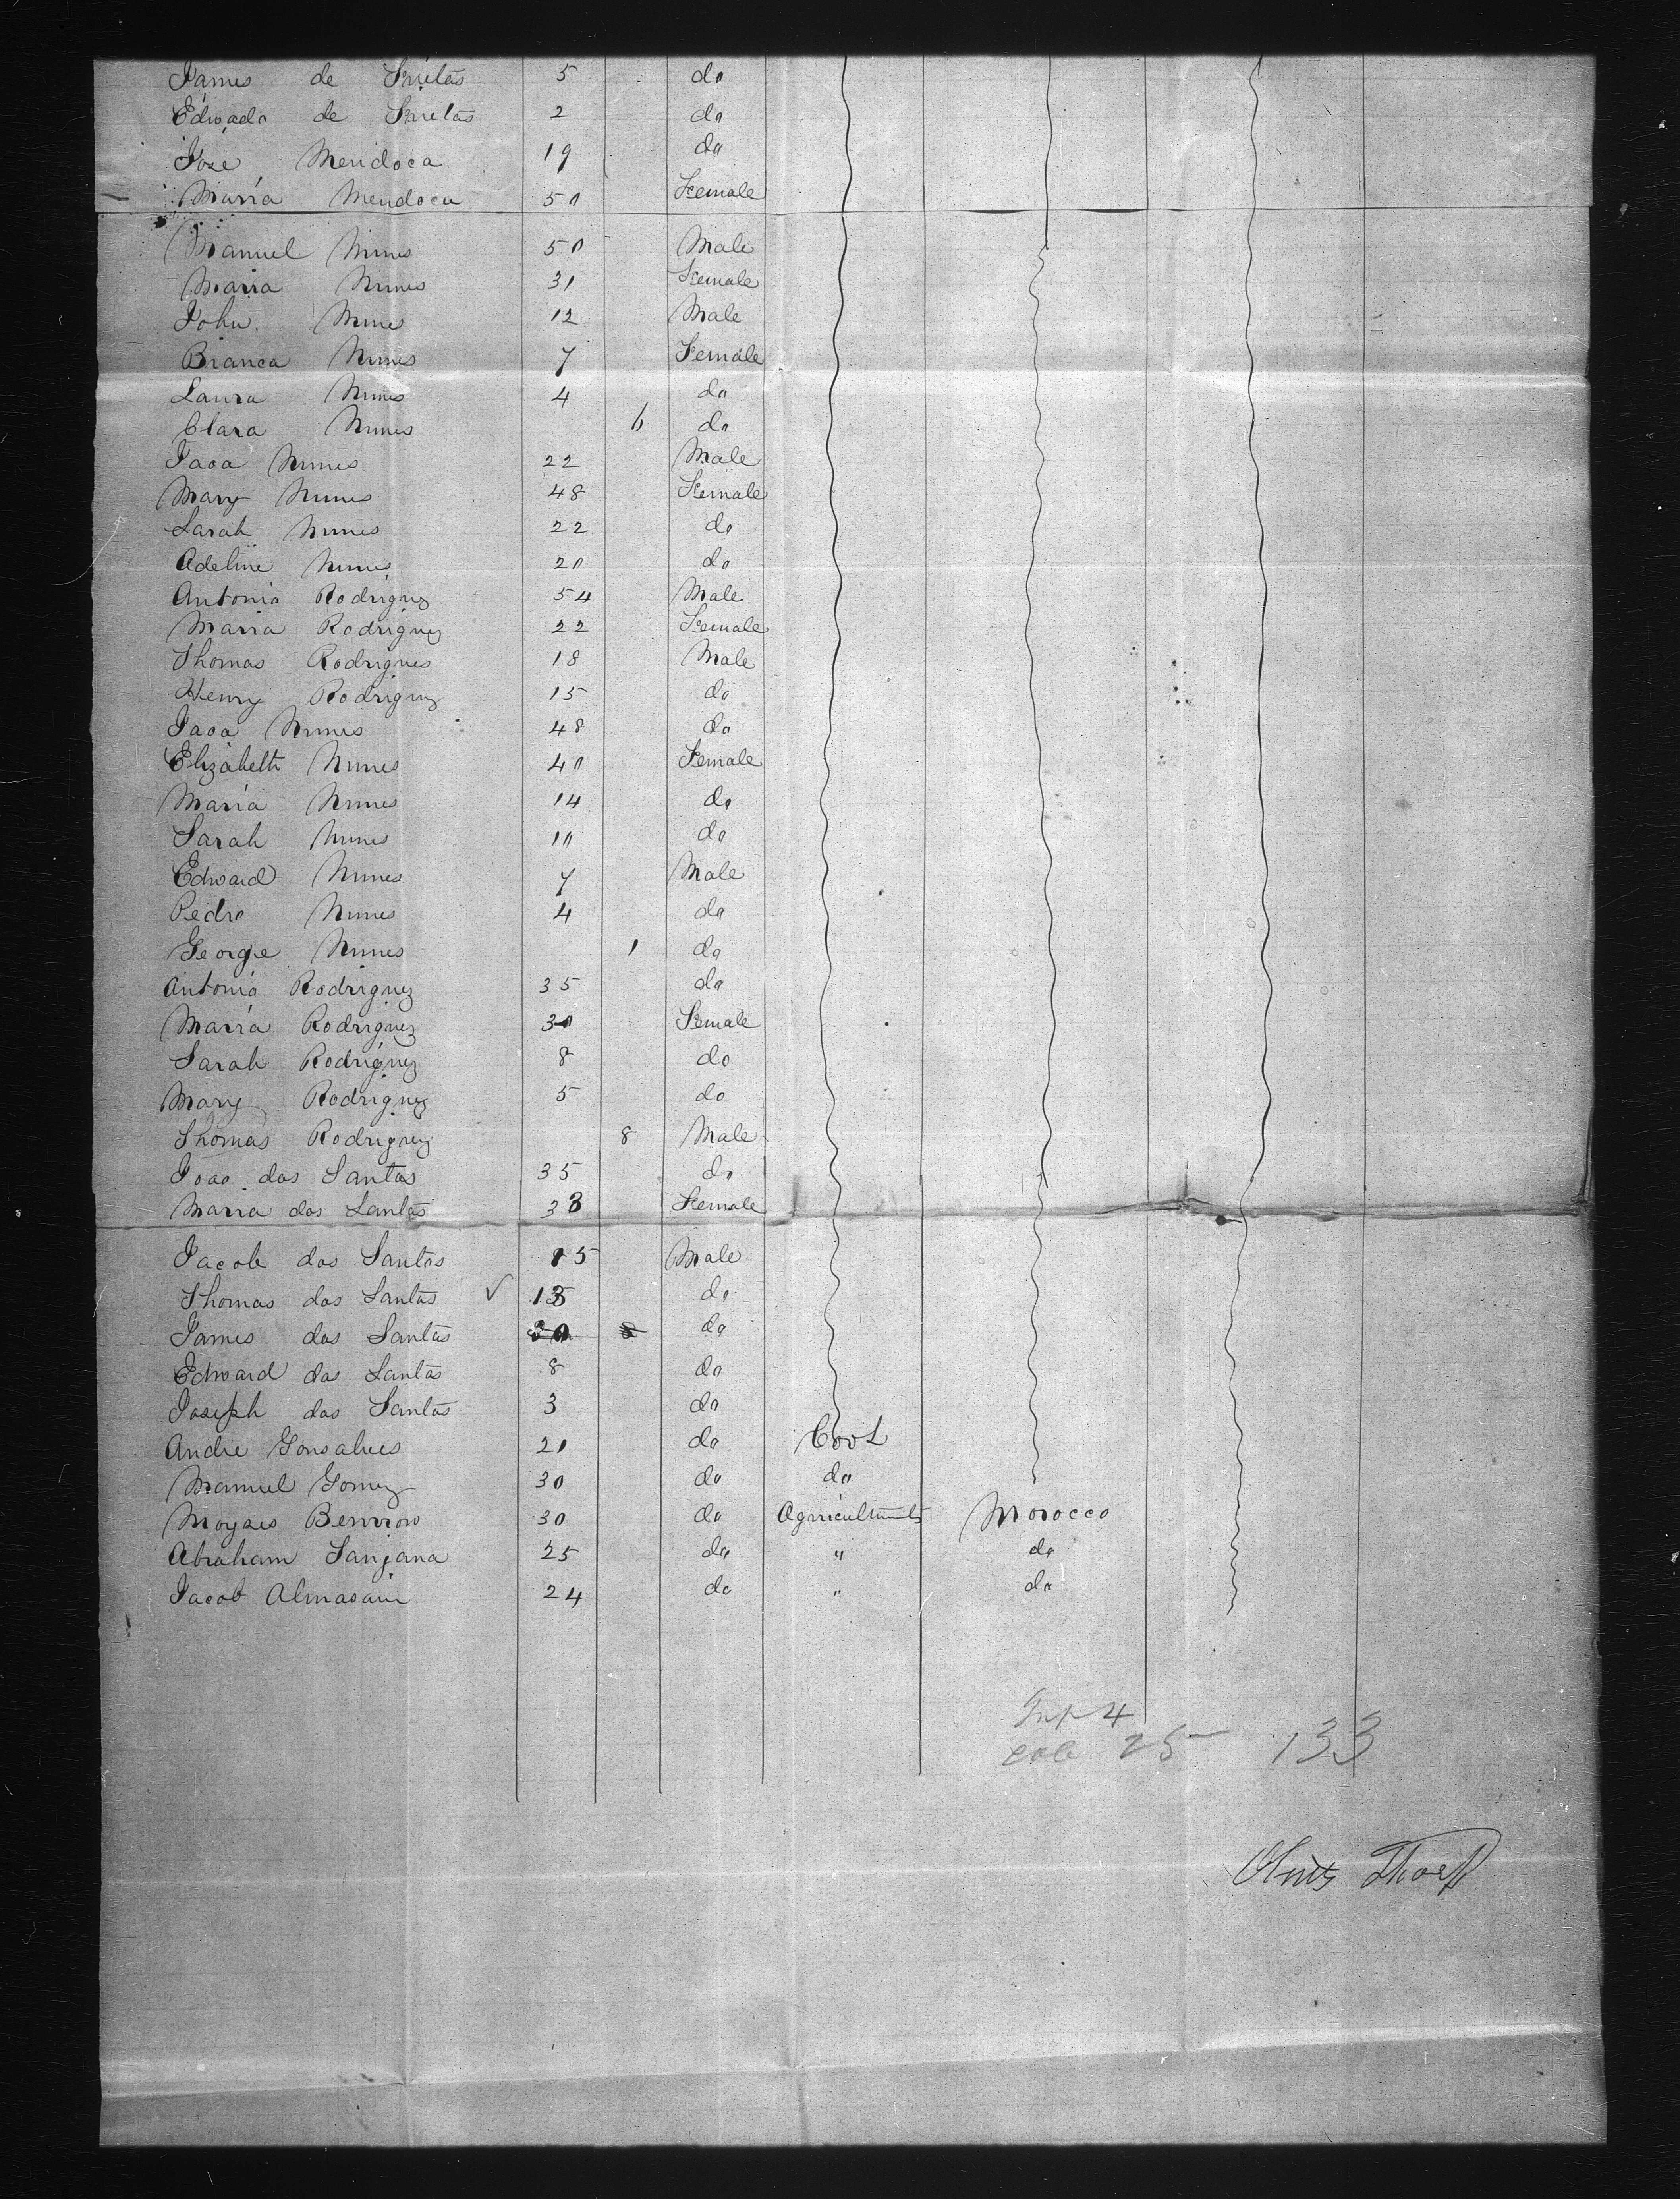 James de Frietas 5 do
Edwado de Frietas 2 do
Jose Mendoca 19 do
Maria Mendoca 50 Female
Manuel Nunes 50 Male
Maria Nunes 31 Female
John Nunes 12 Male
Branca Nunes 7 Female
Laura Nunes 4 do
Clara Nunes 6 do
Jaoa Nunes 22 Male
Mary Nunes 48 Female
Sarah Nunes 22 do
Adeline Nunes 20 do
Antonio Rodriguez 54 Male
Maria Rodriguez 22 Female
Thomas Rodrigues 18 Male
Henry Rodriguez 15 do
Jaoa Nunes 48 do
Elizabeth Nunes 40 Female
Maria Nunes 14 do
Sarah Nunes 10 do
Edward Nunes 7 Male
Pedro Nunes 4 do
George Nunes 1 do
Antonio Rodriguez 35 do
Maria Rodriguez 30 Female
Sarah Rodriguez 8 do
Mary Rodriguez 5 do
Thomas Rodriguez 8 Male
Joao dos Santos 35 do
Maria dos Santos 33 Female
Jacob dos Santos 15 Male
Thomas dos Santos ✓ 13 do
James dos Santos do
Edward dos Santos 8 do
Joseph dos Santos 3 do
Andre Gonsalves 21 do Coot
Manuel Gomez 30 do do
Moyses 30 do Morocco
Abraham Sanjana 25 do " do
Jacob 24 do " do
Inf 4
25 133
Thorp